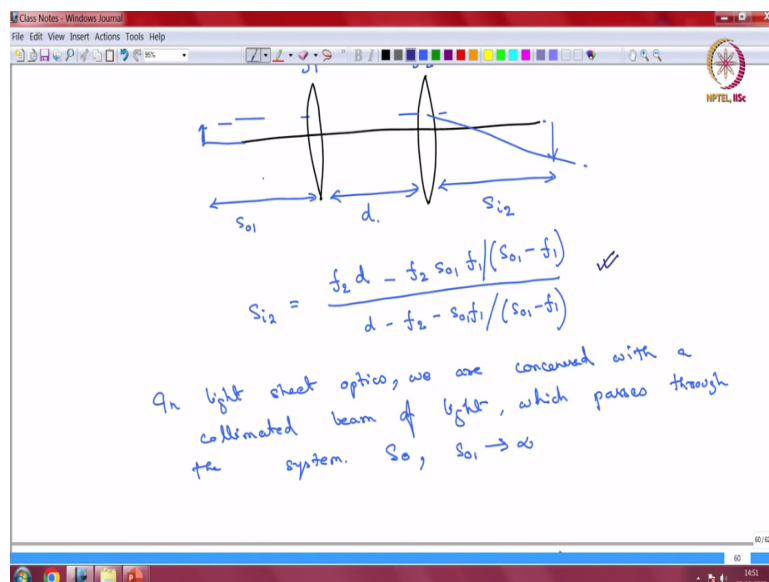 Class Notes - Windows Journal
File Edit View Insert Actions Tools Help
95%
B I
NPTEL, IISc
S01 d. Si2
Si2 = f2 d - f2 S01 f1/(S01 - f1) / d - f2 - S01f1/(S01-f1)
In light sheet optics, we are concerned with a
collimated beam of light, which passes through
the system. So, S01 → ∞
60/62
60
14:51